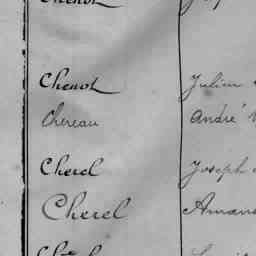 Chenot
Chenot Julien
Chereau André
Cherel Joseph
Cherel Amand